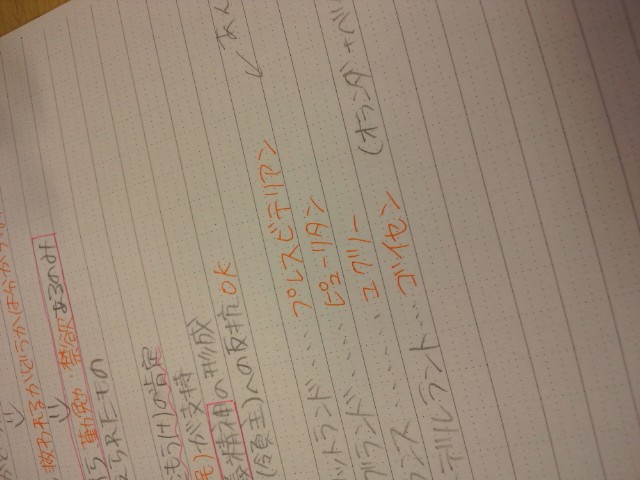 救われるかどうかは分からな
⇓
勤勉・禁欲あるのみ
られたもの
もうけの肯定
民)が支持
義精神の形成
(領主)への反抗OK
ットランド....プレスビテリアン
グランド....ピューリタン
ンス........ユグノー
デルラント...ゴイセン
(オランダ+ベル